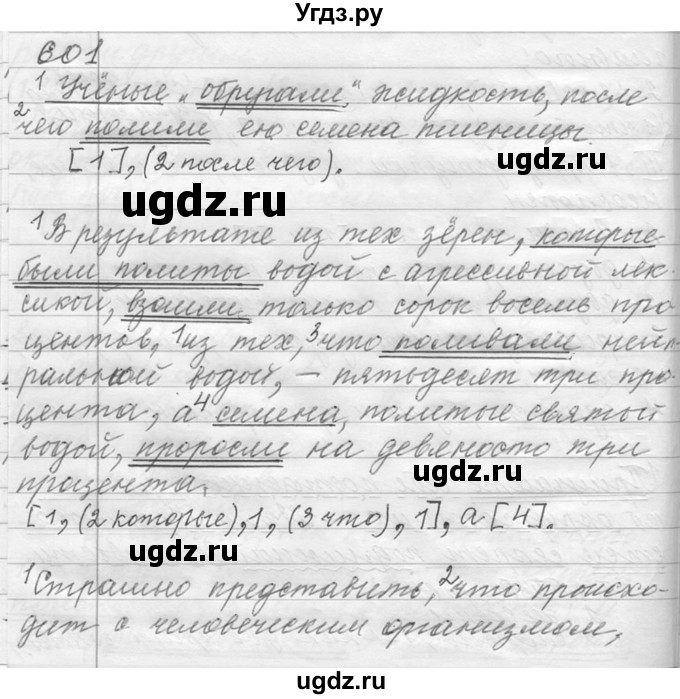 Угдз.ру
601
1 Учёные „обругали" жидкость, после
2 чего полили ею семена пшеницы.
[1], (2 после чего).
ugdz.ru ugdz.ru
1 В результате из тех зёрен, которые
были политы водой с агрессивной лек-
сикой, взошли только сорок восемь про
центов, 1 из тех, 3 что поливали нейт-
ральной водой, – пятьдесят три про-
цента, а 4 семена, политые святый
водой, проросли на девяносто три
процента.
ugdz.ru
[1, (2 которые), 1, (3 что), 1], а [4].
ugdz.ru
1 Страшно представить, 2 что происхо-
дит с человеческим организмом,
ugdz.ru